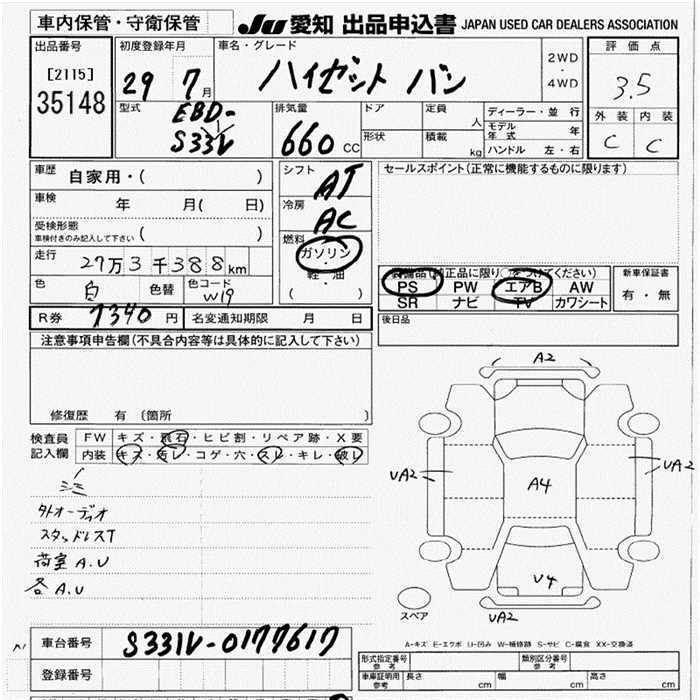 車内保管・守衛保管
JU 愛知 出品申込書 JAPAN USED CAR DEALERS ASSOCIATION
出品番号
[2115]
35148
初度登録年月
29 7月
車名・グレード
ハイゼット バン
2WD
・
4WD
評価点
3.5
外装 内装
C C
型式
EBD-
S331V
排気量
660 CC
ドア
形状
定員
人
積載
kg
ディーラー・並行
モデル年式 年
ハンドル 左・右
車歴 自家用・( )
車検 年 月( 日)
受検形態
車検付きのみ記入して下さい ( )
走行 27万3千388km
色 白 色替 色コード W19
シフト AT
冷房 AC
燃料
ガソリン
・
軽・油
( )
セールスポイント(正常に機能するものに限ります)
装備品(純正品に限り○をつけてください)
PS PW エアB AW
SR ナビ TV カワシート
新車保証書
有・無
R券 7340円 名変通知期限 月 日
後日品
注意事項申告欄(不具合内容等は具体的に記入して下さい)
修復歴 有 (箇所 )
検査員
記入欄
FW キズ・飛石・ヒビ割・リペア跡・X要
内装 キズ・汚レ・コゲ・穴・スレ・キレ・破レ
シミ
外オーディオ
スタッドレスT
荷室A.U
各A.U
A2
UA2
A4
UA2
U4
UA2
スペア
A-キズ E-エクボ U-凹み W-補修跡 S-サビ C-腐食 XX-交換済
車台番号 S331V-0177617
登録番号
形式指定番号
参考
類別区分番号
参考
車庫証明用
参考
長さ cm 幅 cm 高さ cm